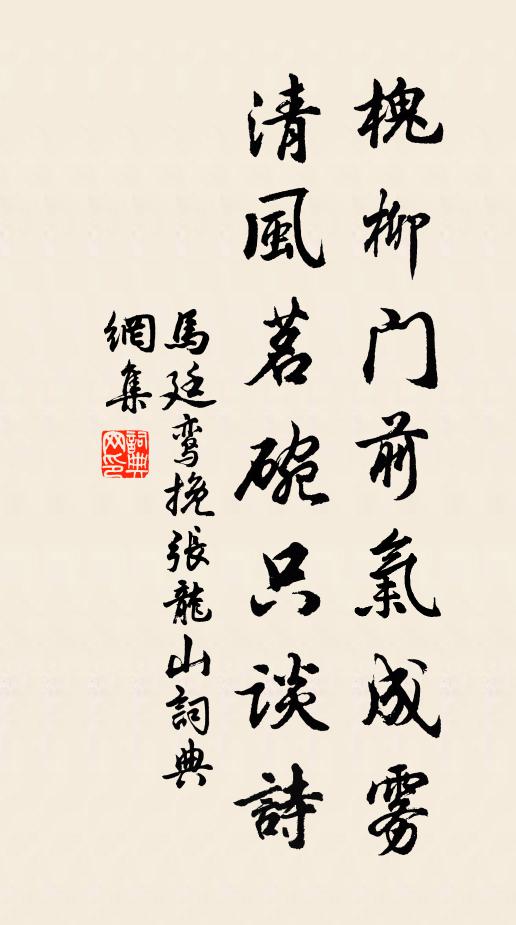 槐柳門前氣成雾
清風茗碗只談詩
馬廷鸾挽張龍山詞典
網集
詞典網印